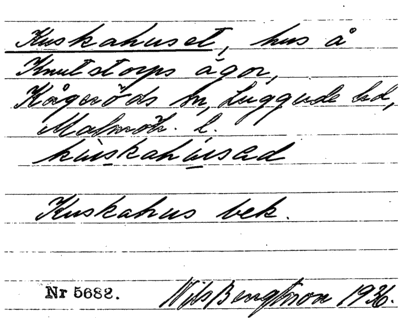 Kuskahuset, hus å
Knutstorps ägor,
Kågeröds sn, Luggude hd,
Malmöh. l.
kuskahused
Kuskahus bek.
Nr 5682. Nils Bengtsson 1936.